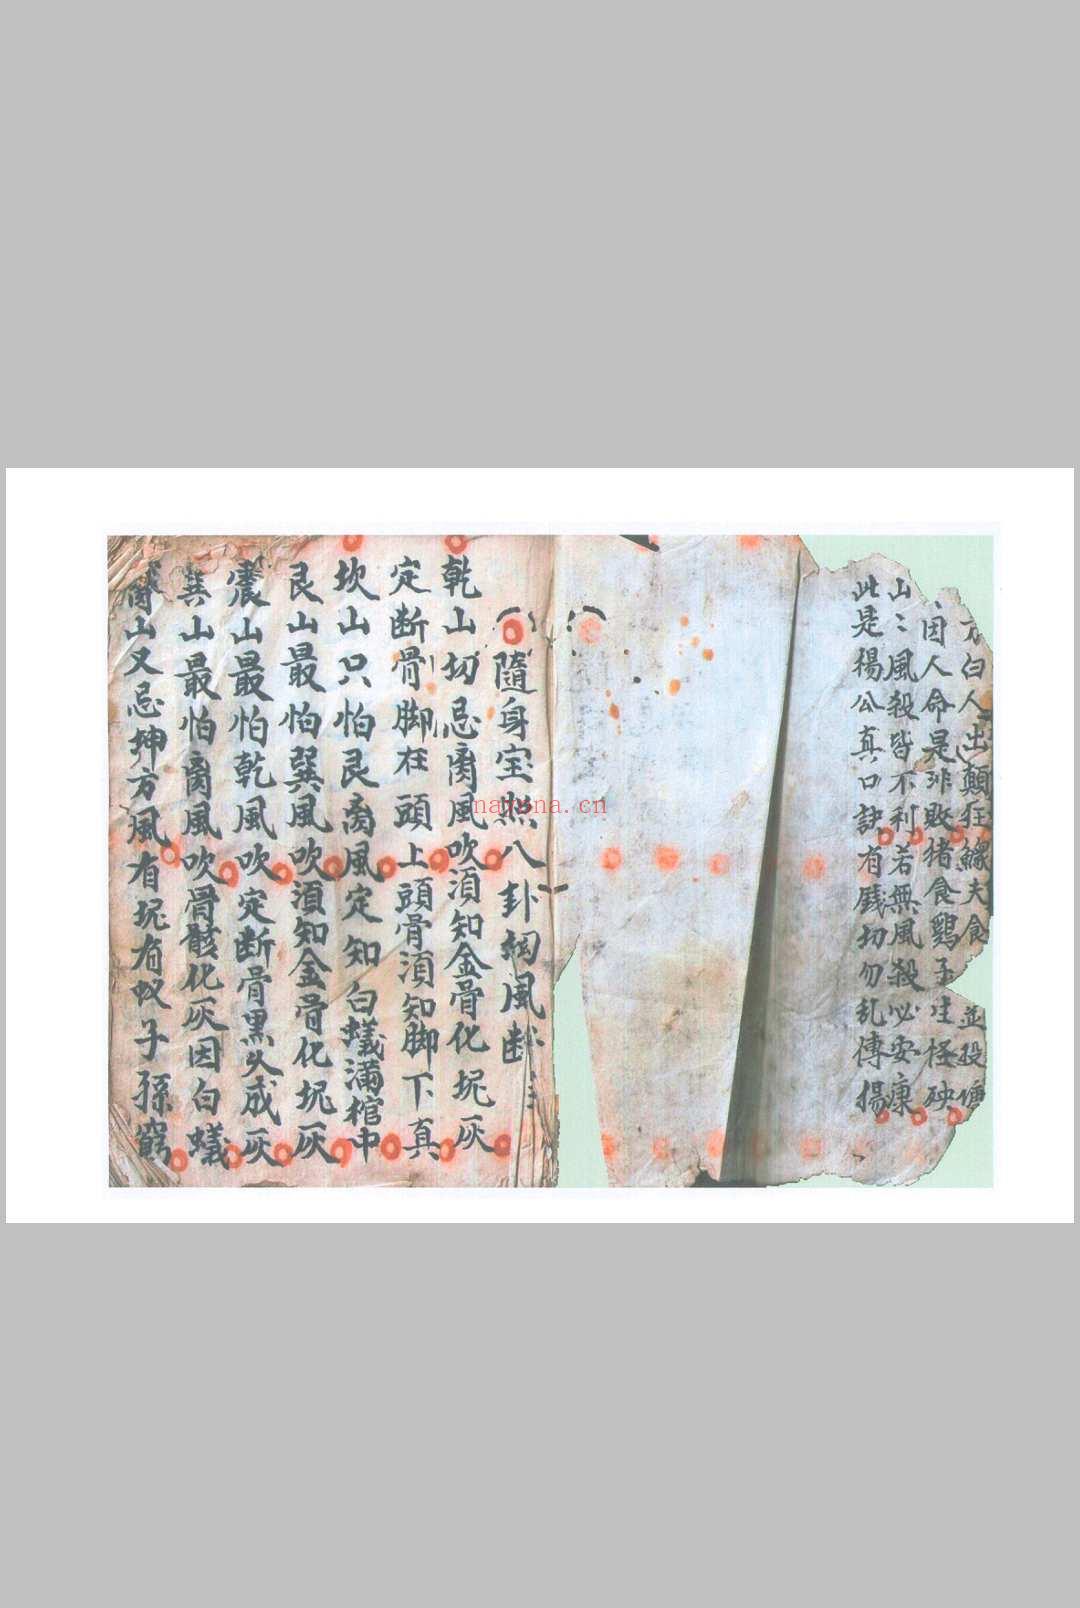 方白人出顛狂鰥夫食 並投塘
因人命是非敗猪食鷄子生怪殃
山〻風殺皆不利若無風殺必安康
此是楊公真口訣有錢切勿乱傳揚
隨身宝照八卦網風断
乾山切忌离風吹須知金骨化坭灰
定断骨脚在頭上頭骨須知脚下真
坎山只怕艮离風定知白蟻滿棺中
艮山最怕巽風吹須知金骨化坭灰
震山最怕乾風吹定断骨黑久成灰
巽山最怕离風吹骨骸化灰因白蟻
离山又忌坤方風有坭有蚁子孫窮
nayona.cn